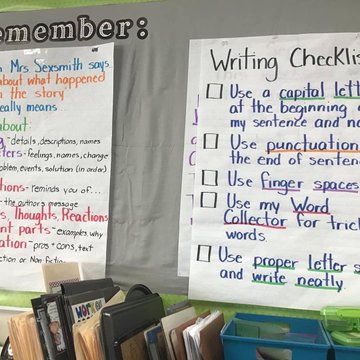 emember:
Mrs Sexsmith says
about what happened
the story
eally means...
about:
details, descriptions, names
feelings, names, change
oblem, events, solution (in order)
ions - reminds you of...
the author's message
s, Thoughts, Reactions
nt parts - examples, why
ation - pros + cons, text
ction or Non-fiction
Writing Checklis
Use a capital lett
at the beginning
my sentence and na
Use punctuation
the end of senten
Use finger spaces
Use my Word
Collector for tric
words.
Use proper letter s
and write neatly.